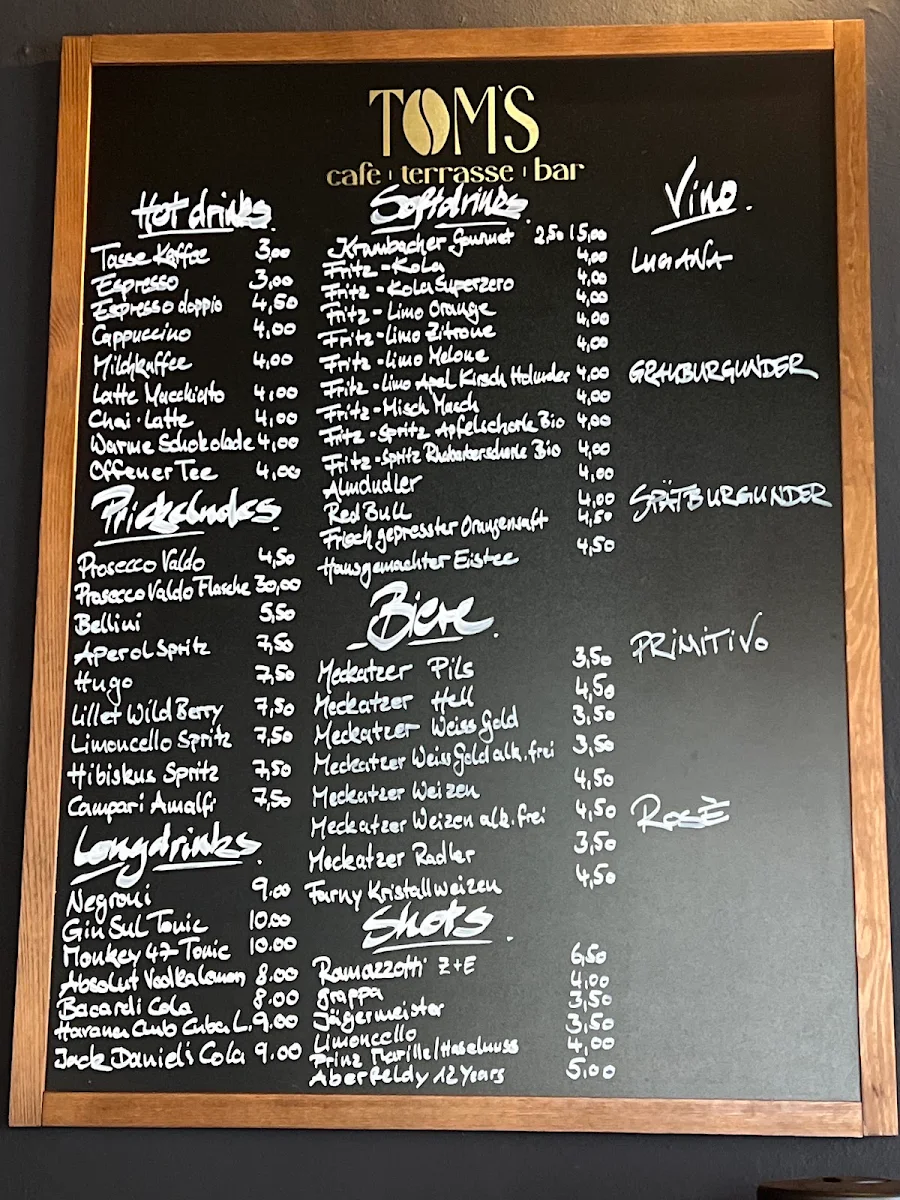 TOM'S
cafe | terrasse | bar
Hot drinks.
Tasse Kaffee 3,00
Espresso 3,00
Espresso doppio 4,50
Cappuccino 4,00
Milchkaffee 4,00
Latte Macchiato 4,00
Chai-Latte 4,00
Warme Schokolade 4,00
Offener Tee 4,00
Prickelndes.
Prosecco Valdo 4,50
Prosecco Valdo Flasche 30,00
Bellini 5,50
Aperol Spritz 7,50
Hugo 7,50
Lillet Wild Berry 7,50
Limoncello Spritz 7,50
Hibiskus Spritz 7,50
Campari Amalfi 7,50
Longdrinks.
Negroni 9.00
Gin Sul Tonic 10.00
Monkey 47 Tonic 10.00
Absolut Vodkalemon 8.00
Bacardi Cola 8.00
Havanna Club Cuba L. 9.00
Jack Daniels Cola 9.00
Softdrinks.
Krumbacher Gourmet 2,50 | 5,00
Fritz-Kola 4,00
Fritz-Kola Superzero 4,00
Fritz-Limo Orange 4,00
Fritz-Limo Zitrone 4,00
Fritz-Limo Melone 4,00
Fritz-Limo Apel Kirsch Holunder 4,00
Fritz-Misch Masch 4,00
Fritz-Spritz Apfelschorle Bio 4,00
Fritz-Spritz Rhabarberschorle Bio 4,00
Almdudler 4,00
Red Bull 4,00
Frisch gepresster Orangensaft 4,50
Hausgemachter Eistee 4,50
Biere.
Meckatzer Pils 3,50
Meckatzer Hell 4,50
Meckatzer Weiss Gold 3,50
Meckatzer Weiss Gold alk.frei 3,50
Meckatzer Weizen 4,50
Meckatzer Weizen alk.frei 4,50
Meckatzer Radler 3,50
Farny Kristallweizen 4,50
Shots.
Ramazzotti Z+E 6,50
Grappa 4,00
Jägermeister 3,50
Limoncello 3,50
Prinz Marille/Haselnuss 4,00
Aberfeldy 12 Years 5,00
Vino.
LUGANA
GRAUBURGUNDER
SPÄTBURGUNDER
PRIMITIVO
ROSÈ